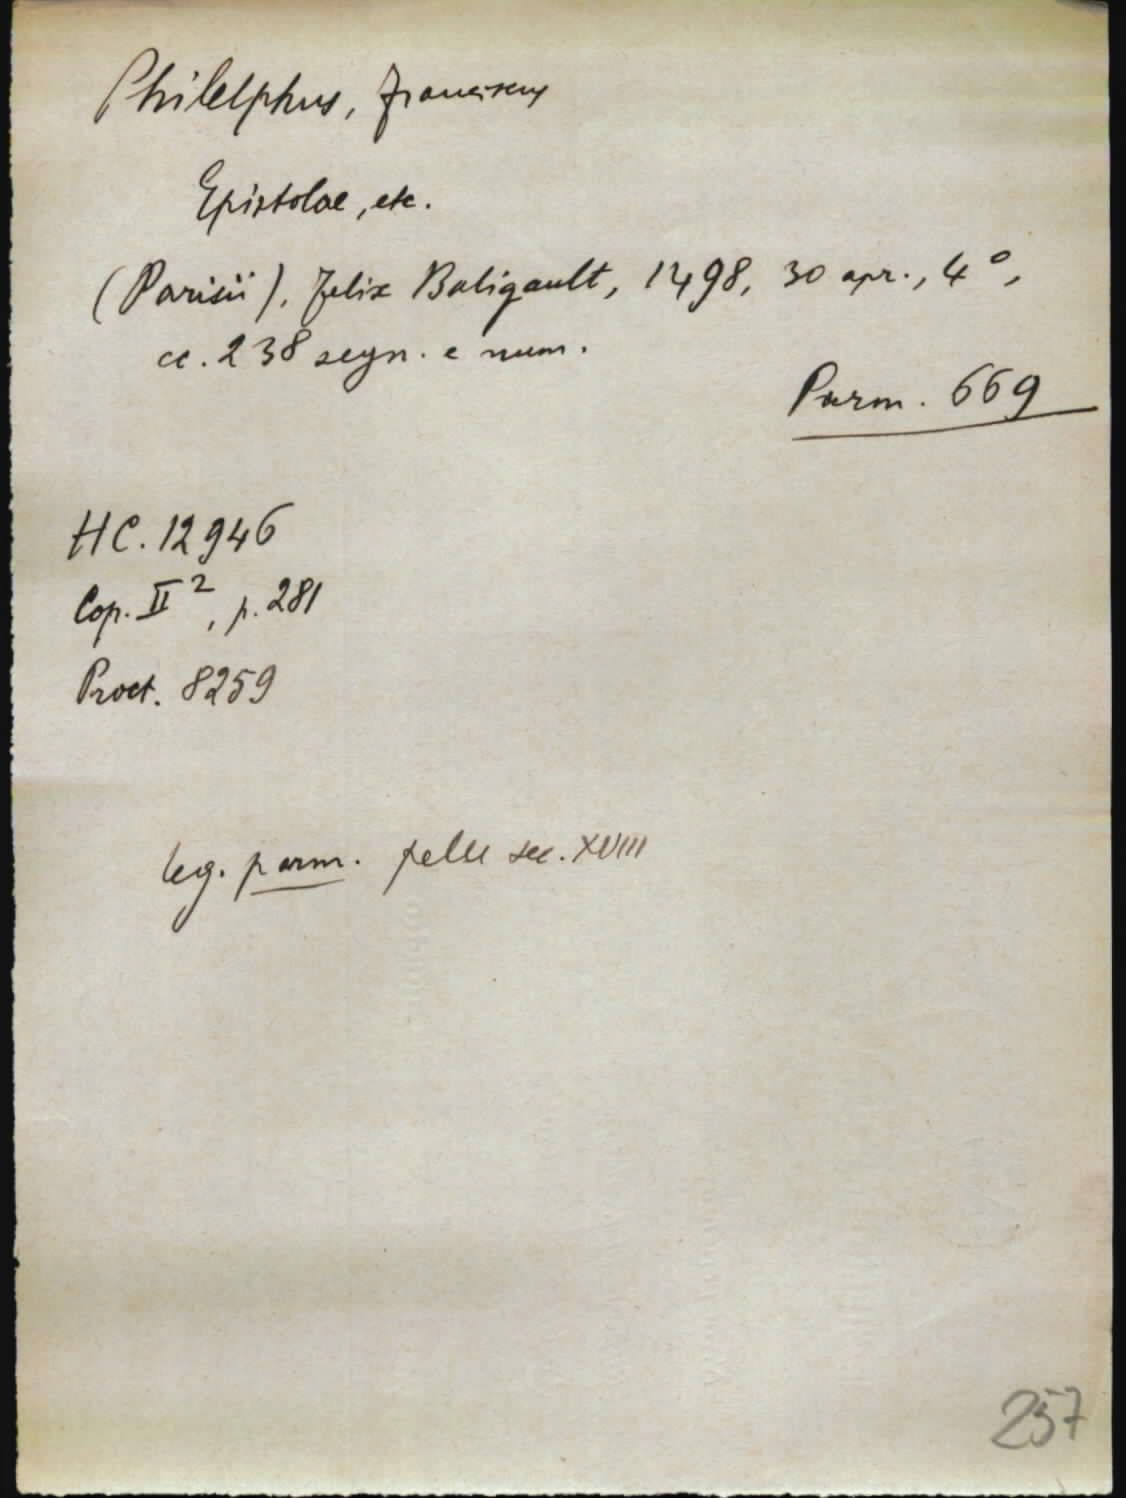 Philelphus, Franciscus
Epistolae, etc.
(Parisii), Felix Baligault, 1498, 30 apr., 4°,
cc. 238 segn. e num.
Parm. 669
HC. 12946
Cop. II², p. 281
Proct. 8259
leg. parm. pelle sec. XVIII
257